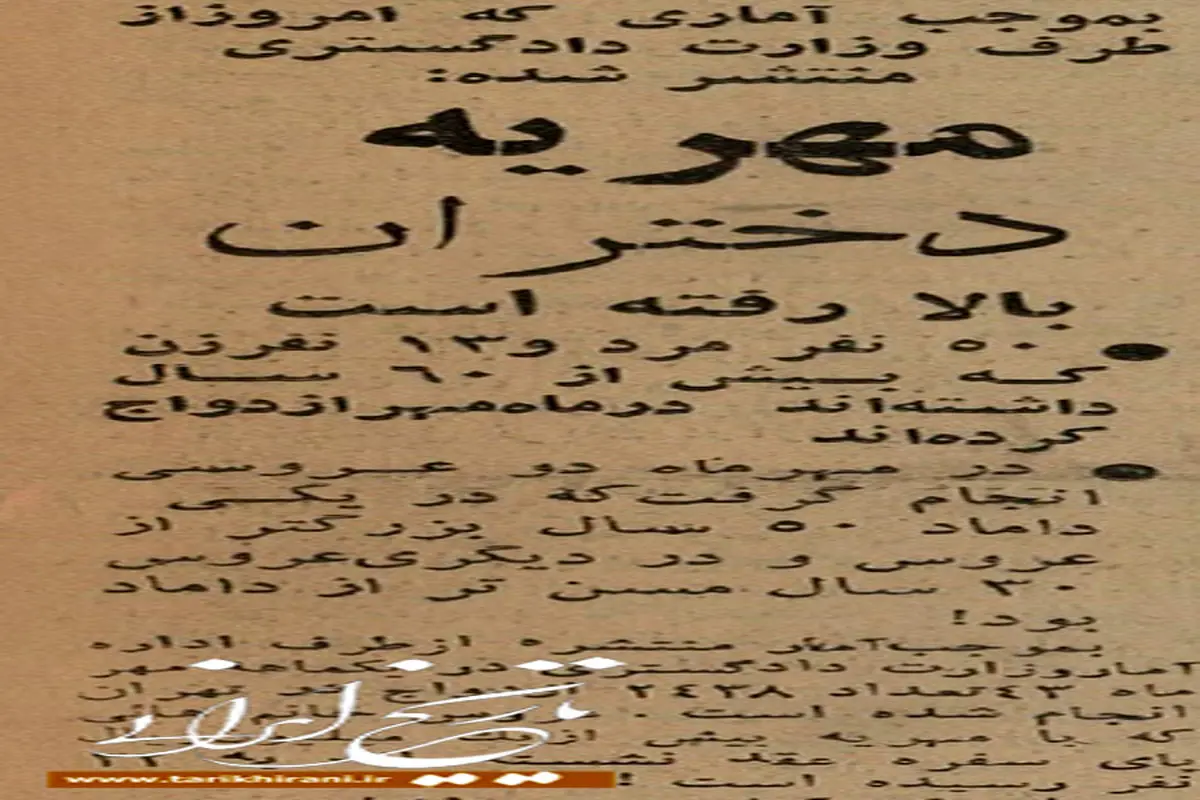 بموجب آماری که امروز از
طرف وزارت دادگستری
منتشر شده:
مهریه
دختران
بالا رفته است
● ۵۰ نفر مرد و ۱۳ نفر زن
که بیش از ۶۰ سال
داشته‌اند در ماه مهر ازدواج
کرده‌اند
● در مهرماه دو عروسی
انجام گرفت که در یکی
داماد ۵۰ سال بزرگتر از
عروس و در دیگری عروس
۳۰ سال مسن تر از داماد
بود!
بموجب آمار منتشره از طرف اداره
آمار وزارت دادگستری در یکماهه مهر
ماه ۴۳ تعداد ۲۴۲۸ ازدواج در تهران
انجام شده است.
که با مهریه بیش از
پای سفره عقد نشسته
نفر رسیده است!
تاریخ ایرانی
www.tarikhirani.ir